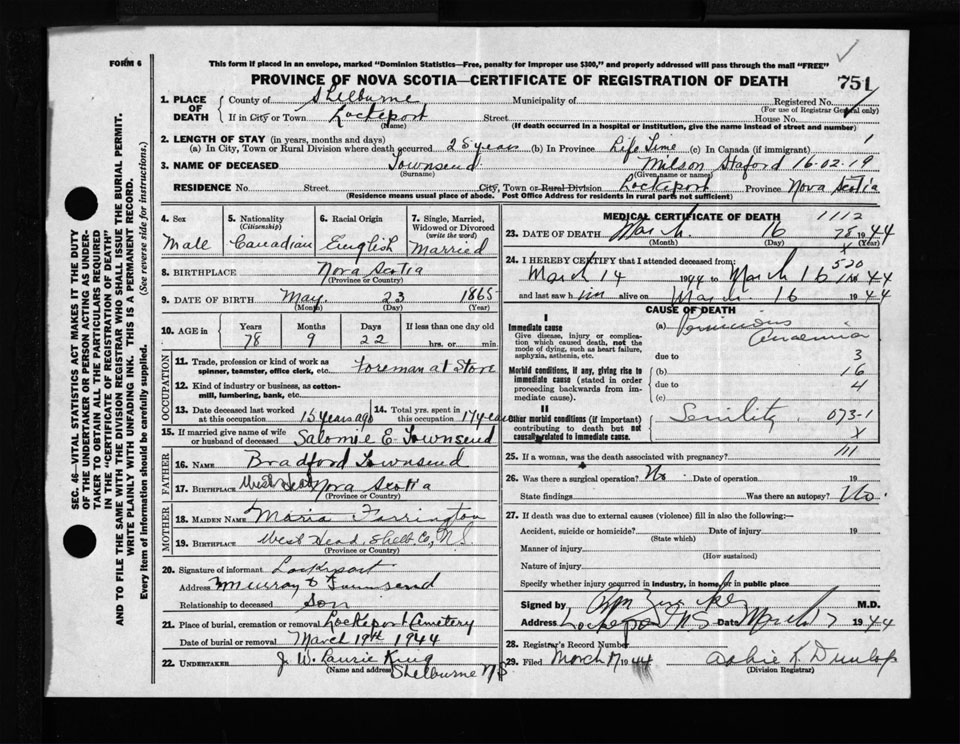 FORM 6
This form if placed in an envelope, marked "Dominion Statistics—Free, penalty for improper use $300," and properly addressed will pass through the mail "FREE"
PROVINCE OF NOVA SCOTIA—CERTIFICATE OF REGISTRATION OF DEATH 751
SEC. 46—VITAL STATISTICS ACT MAKES IT THE DUTY
OF THE UNDERTAKER OR PERSON ACTING AS UNDER-
TAKER TO OBTAIN ALL THE PARTICULARS REQUIRED
IN THE "CERTIFICATE OF REGISTRATION OF DEATH"
AND TO FILE THE SAME WITH THE DIVISION REGISTRAR WHO SHALL ISSUE THE BURIAL PERMIT.
WRITE PLAINLY WITH UNFADING INK. THIS IS A PERMANENT RECORD.
Every item of information should be carefully supplied. (See reverse side for instructions.)
1. PLACE OF DEATH
County of Shelburne Municipality of Registered No.
(For use of Registrar General only)
If in City or Town Lockeport Street House No.
(Name) (If death occurred in a hospital or institution, give the name instead of street and number)
2. LENGTH OF STAY (in years, months and days)
(a) In City, Town or Rural Division where death occurred 28 years (b) In Province Life Time (c) In Canada (if immigrant) 1
3. NAME OF DECEASED Townsend Milson Staford 16-02-19
(Surname) (Given name or names)
RESIDENCE No. Street City, Town or Rural Division Lockeport Province Nova Scotia
(Residence means usual place of abode. Post Office Address for residents in rural parts not sufficient)
4. Sex
Male
5. Nationality (Citizenship)
Canadian
6. Racial Origin
English
7. Single, Married, Widowed or Divorced (write the word)
Married
8. BIRTHPLACE Nova Scotia
(Province or Country)
9. DATE OF BIRTH May 23 1865
(Month) (Day) (Year)
10. AGE in Years Months Days If less than one day old
78 9 22 hrs. or min.
OCCUPATION
11. Trade, profession or kind of work as
spinner, teamster, office clerk, etc. Foreman at Store
12. Kind of industry or business, as cotton-
mill, lumbering, bank, etc.
13. Date deceased last worked at this occupation 15 years ago
14. Total yrs. spent in this occupation
15. If married give name of wife
or husband of deceased Salomie E. Townsend
FATHER
16. NAME Bradford Townsend
17. BIRTHPLACE West Head Nova Scotia
(Province or Country)
MOTHER
18. MAIDEN NAME Maria Farrington
19. BIRTHPLACE West Head, Shelb Co, N.S
(Province or Country)
20. Signature of informant Lockeport
Address Murray Townsend
Relationship to deceased Son
21. Place of burial, cremation or removal Lockeport Cemetery
Date of burial or removal March 19th 1944
22. UNDERTAKER J. W. Laurie King
(Name and address) Shelburne N S
MEDICAL CERTIFICATE OF DEATH 1112
23. DATE OF DEATH March 16 78 1944
(Month) (Day) (Year)
X
24. I HEREBY CERTIFY that I attended deceased from: 520
March 14 1944 to March 16 1944
and last saw him alive on March 16 1944
CAUSE OF DEATH
I
Immediate cause
Give disease, injury or complica-
tion which caused death, not the
mode of dying, such as heart failure,
asphyxia, asthenia, etc.
(a) Pernicious Anaemia
due to 3
Morbid conditions, if any, giving rise to
immediate cause (stated in order
proceeding backwards from im-
mediate cause).
(b) 16
due to 4
(c)
II
Other morbid conditions (if important)
contributing to death but not
causally related to immediate cause.
Senility 073-1
X
25. If a woman, was the death associated with pregnancy? 111
26. Was there a surgical operation? No Date of operation 19
State findings Was there an autopsy? No.
27. If death was due to external causes (violence) fill in also the following:—
Accident, suicide or homicide? Date of injury 19
(State which)
Manner of injury
(How sustained)
Nature of injury
Specify whether injury occurred in industry, in home, or in public place
Signed by M.D.
Address Lockeport N S Date March 17 1944
28. Registrar's Record Number
29. Filed March 17 1944 Dunlop
(Division Registrar)